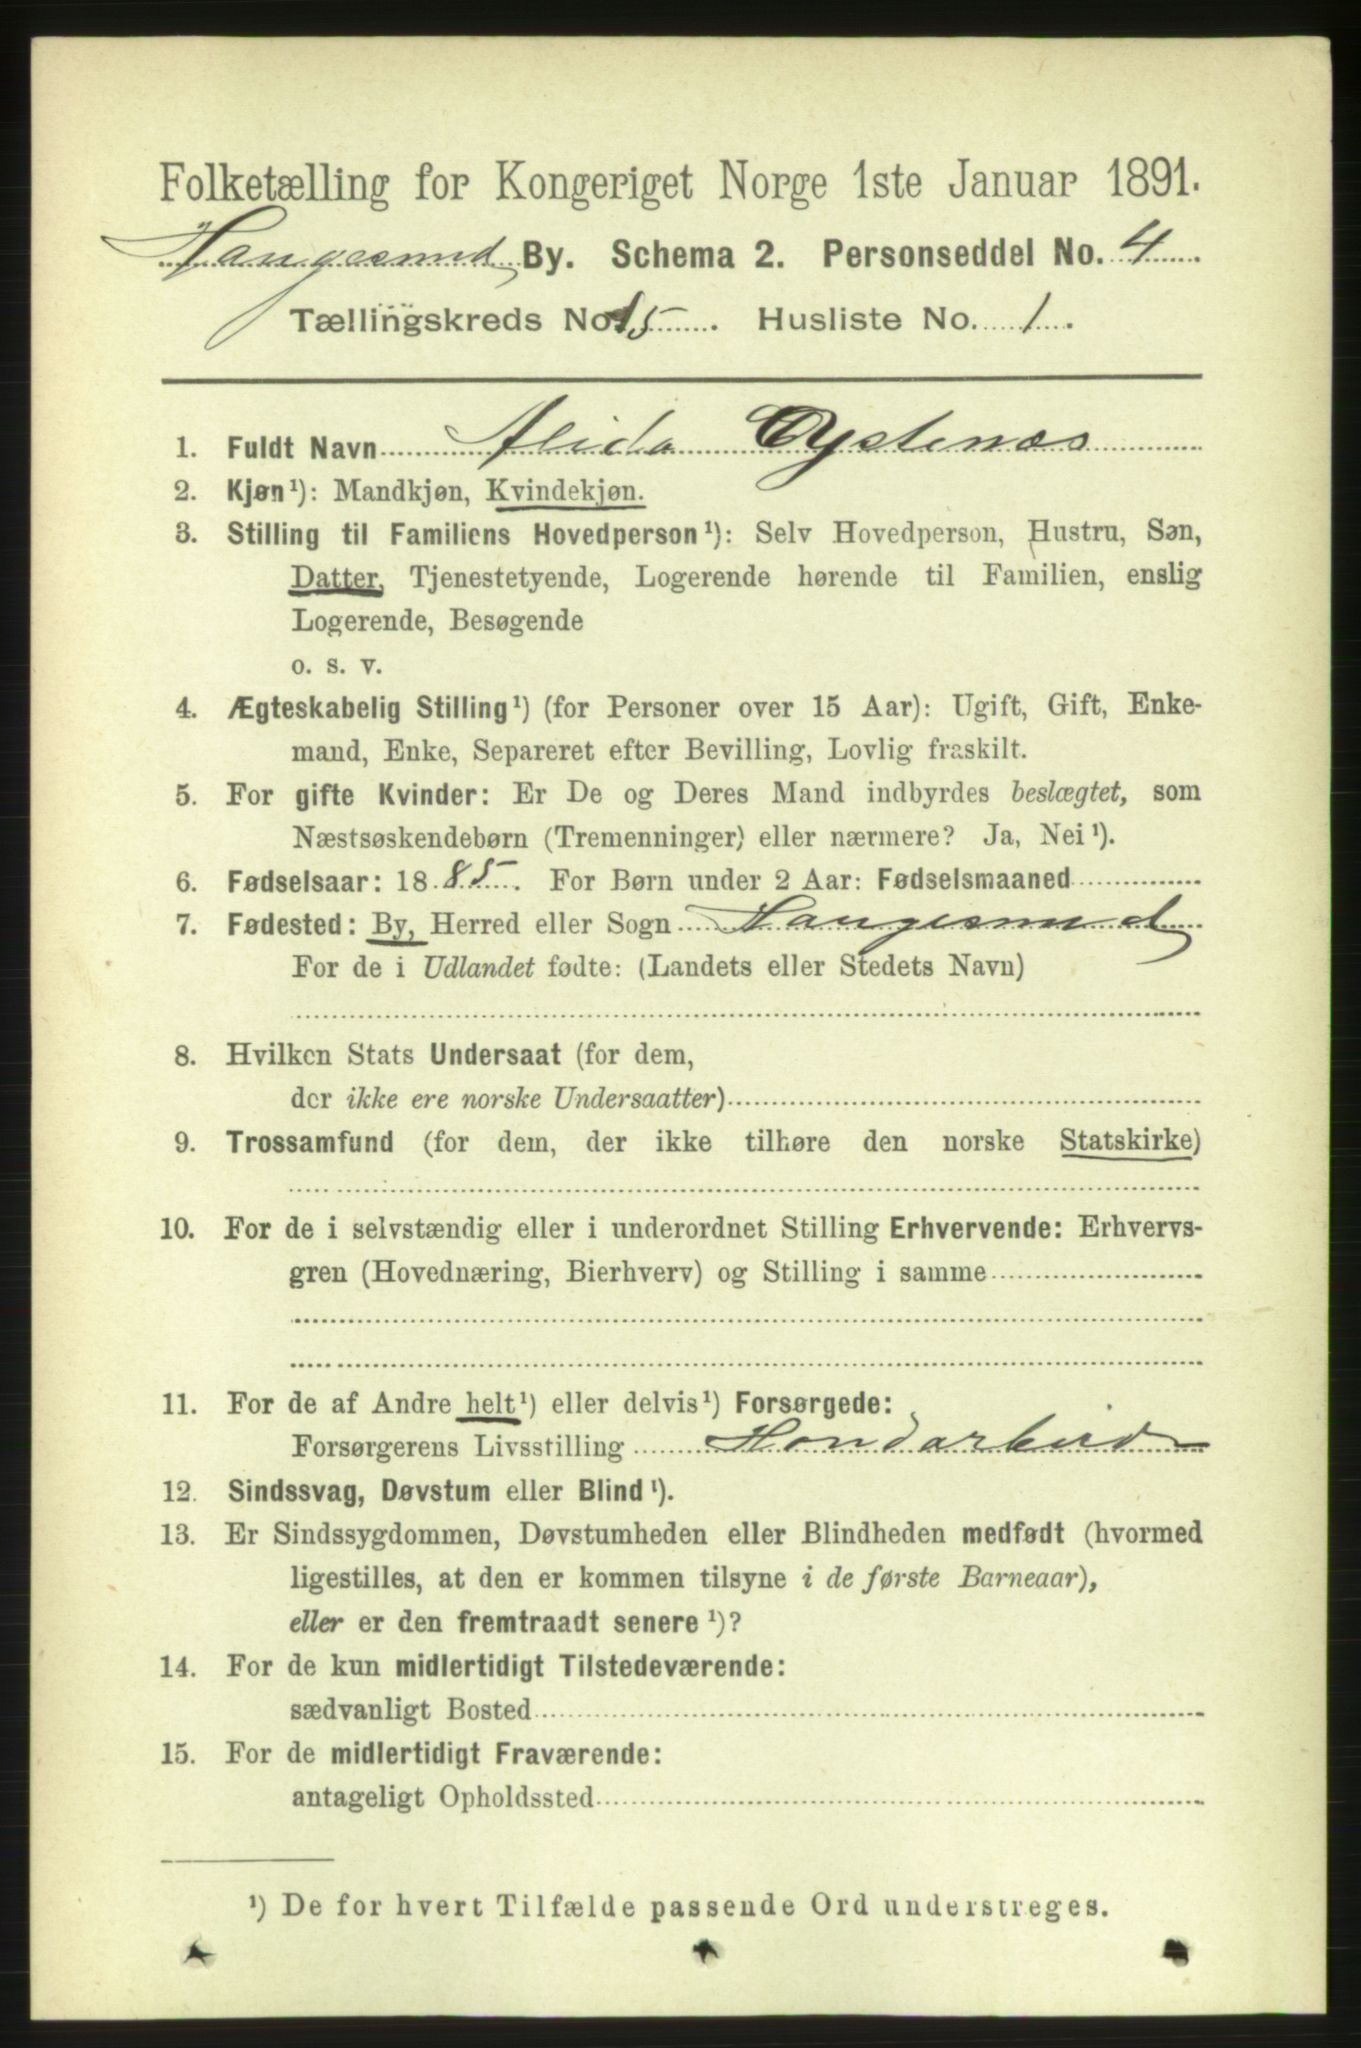 Folketælling for Kongeriget Norge 1ste Januar 1891.
Haugesund By. Schema 2. Personseddel No. 4
Tællingskreds No. 15. Husliste No. 1.
1. Fuldt Navn Alida Øystenæs
2. Kjøn¹): Mandkjøn, Kvindekjøn.
3. Stilling til Familiens Hovedperson¹): Selv Hovedperson, Hustru, Søn,
Datter, Tjenestetyende, Logerende hørende til Familien, enslig
Logerende, Besøgende
o. s. v.
4. Ægteskabelig Stilling¹) (for Personer over 15 Aar): Ugift, Gift, Enke-
mand, Enke, Separeret efter Bevilling, Lovlig fraskilt.
5. For gifte Kvinder: Er De og Deres Mand indbyrdes beslægtet, som
Næstsøskendebørn (Tremenninger) eller nærmere? Ja, Nei¹).
6. Fødselsaar: 1885. For Børn under 2 Aar: Fødselsmaaned
7. Fødested: By, Herred eller Sogn Haugesund
For de i Udlandet fødte: (Landets eller Stedets Navn)
8. Hvilken Stats Undersaat (for dem,
der ikke ere norske Undersaatter)
9. Trossamfund (for dem, der ikke tilhøre den norske Statskirke)
10. For de i selvstændig eller i underordnet Stilling Erhvervende: Erhvervs-
gren (Hovednæring, Bierhverv) og Stilling i samme
11. For de af Andre helt¹) eller delvis¹) Forsørgede:
Forsørgerens Livsstilling
12. Sindssvag, Døvstum eller Blind¹).
13. Er Sindssygdommen, Døvstumheden eller Blindheden medfødt (hvormed
ligestilles, at den er kommen tilsyne i de første Barneaar),
eller er den fremtraadt senere¹)?
14. For de kun midlertidigt Tilstedeværende:
sædvanligt Bosted
15. For de midlertidigt Fraværende:
antageligt Opholdssted
¹) De for hvert Tilfælde passende Ord understreges.